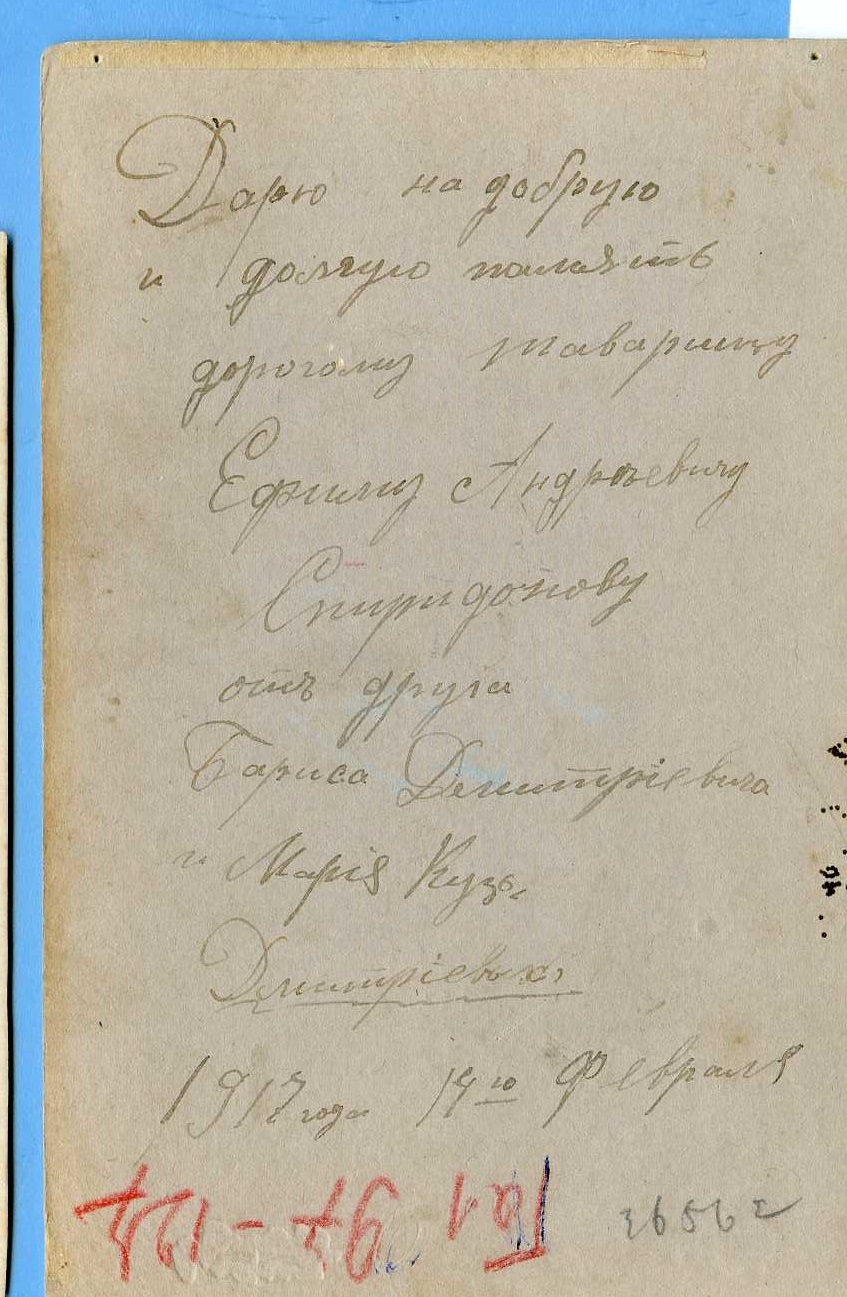 Дарю на добрую
и долгую память
дорогому таварищу
Ефиму Андрѣевичу
Спиридонову
отъ друга
Бариса Демитріевича
и Марія Кузь.
Дмитріевыхъ
1917 года 14го Февраля